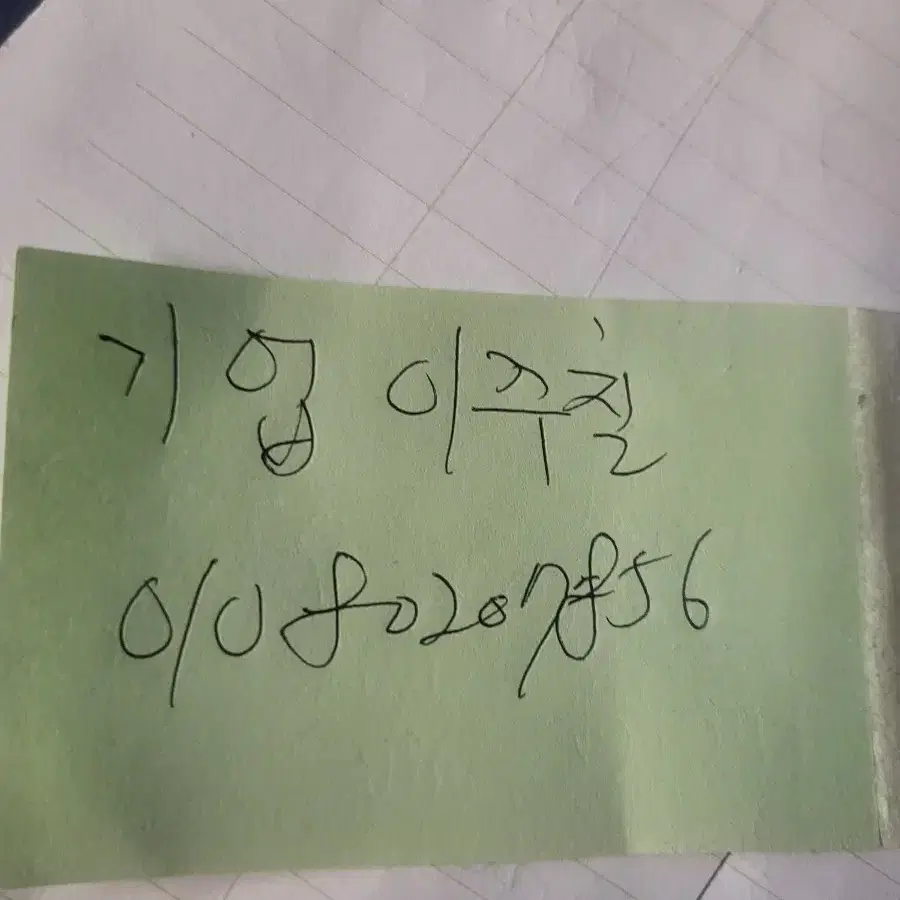 기업 이주칠
01080207856